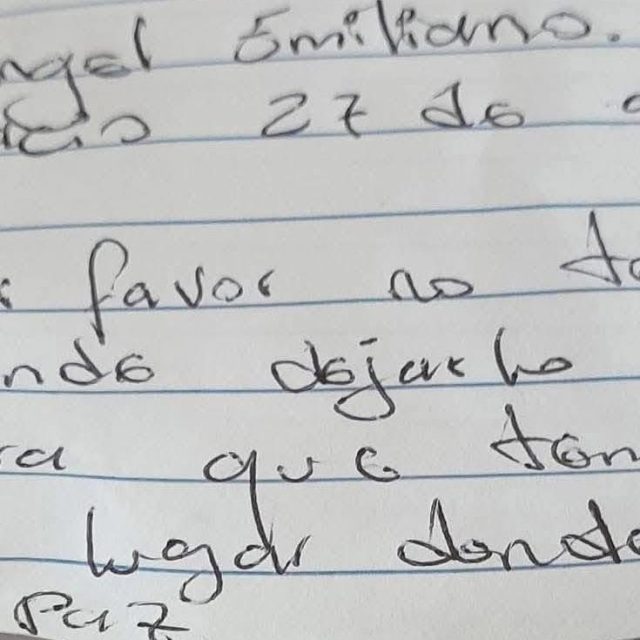 ngel Emiliano.
27 de
favor no
nde dejarlo
ra que ten
lugar donde
Paz